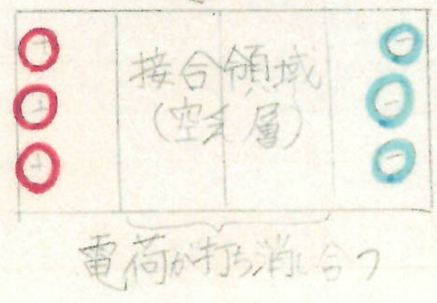 + 接合領域 −
+ (空乏層) −
+ −
電荷が打ち消し合う